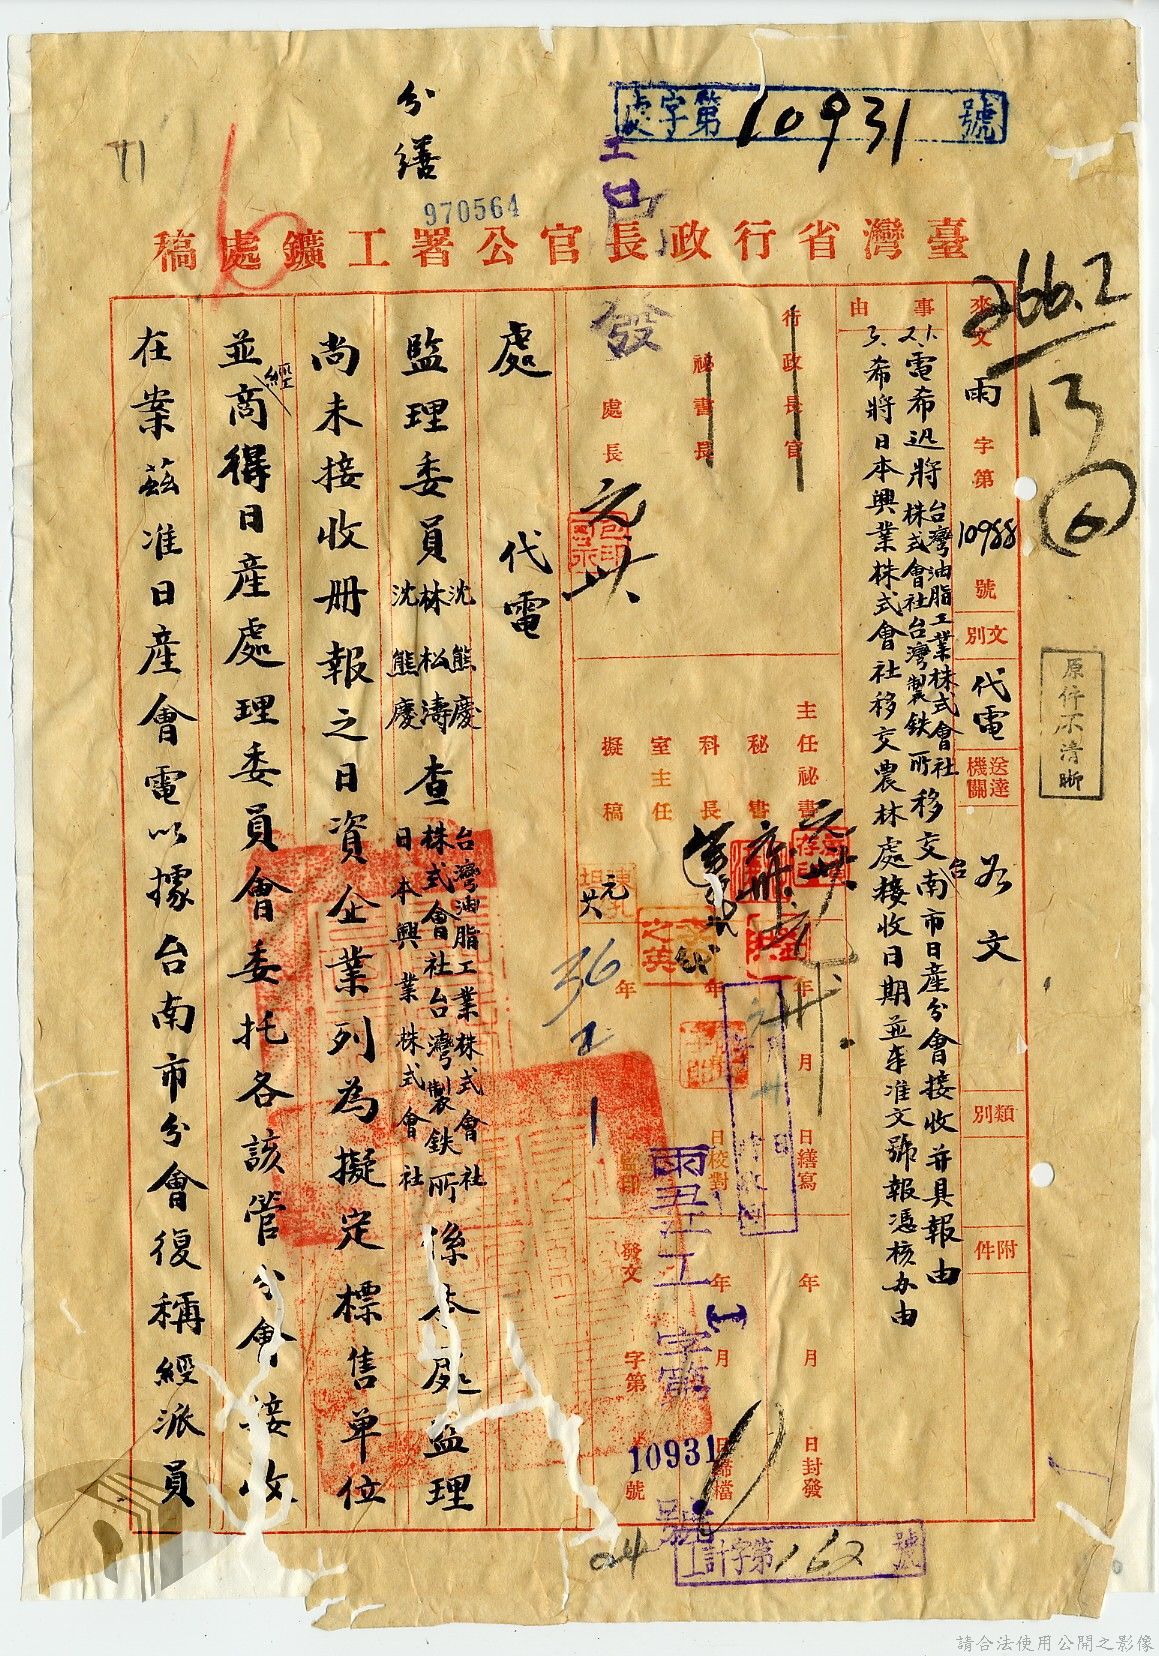 處字第10931號
分繕
970564
臺灣省行政長官公署工鑛處稿
266.2
來文 雨字第10988號
文別 代電
送達機關
文
類別
附件
原件不清晰
事由
電希迅將台灣油脂工業株式會社台灣製鉄所移交台南市日產分會接收并具報由
希將日本興業株式會社移交農林處接收日期並來准文號報憑核办由
行政長官
秘書長
處長
發
主任秘書
秘書
科長
室主任
擬稿
年月日繕寫
年月日校對
監印
年月日封發
年月日歸檔
發文 字第 號
36 2 1
工字第10931號
處
代電
監理委員沈熊慶林松濤沈熊慶查台灣油脂工業株式會社台灣製鉄所日本興業株式會社係本處監理
尚未接收册報之日資企業列為擬定標售單位
並經商得日產處理委員會委托各該管分會接收
在案茲准日產會電以據台南市分會復稱經派員
工計字第162號
請合法使用公開之影像